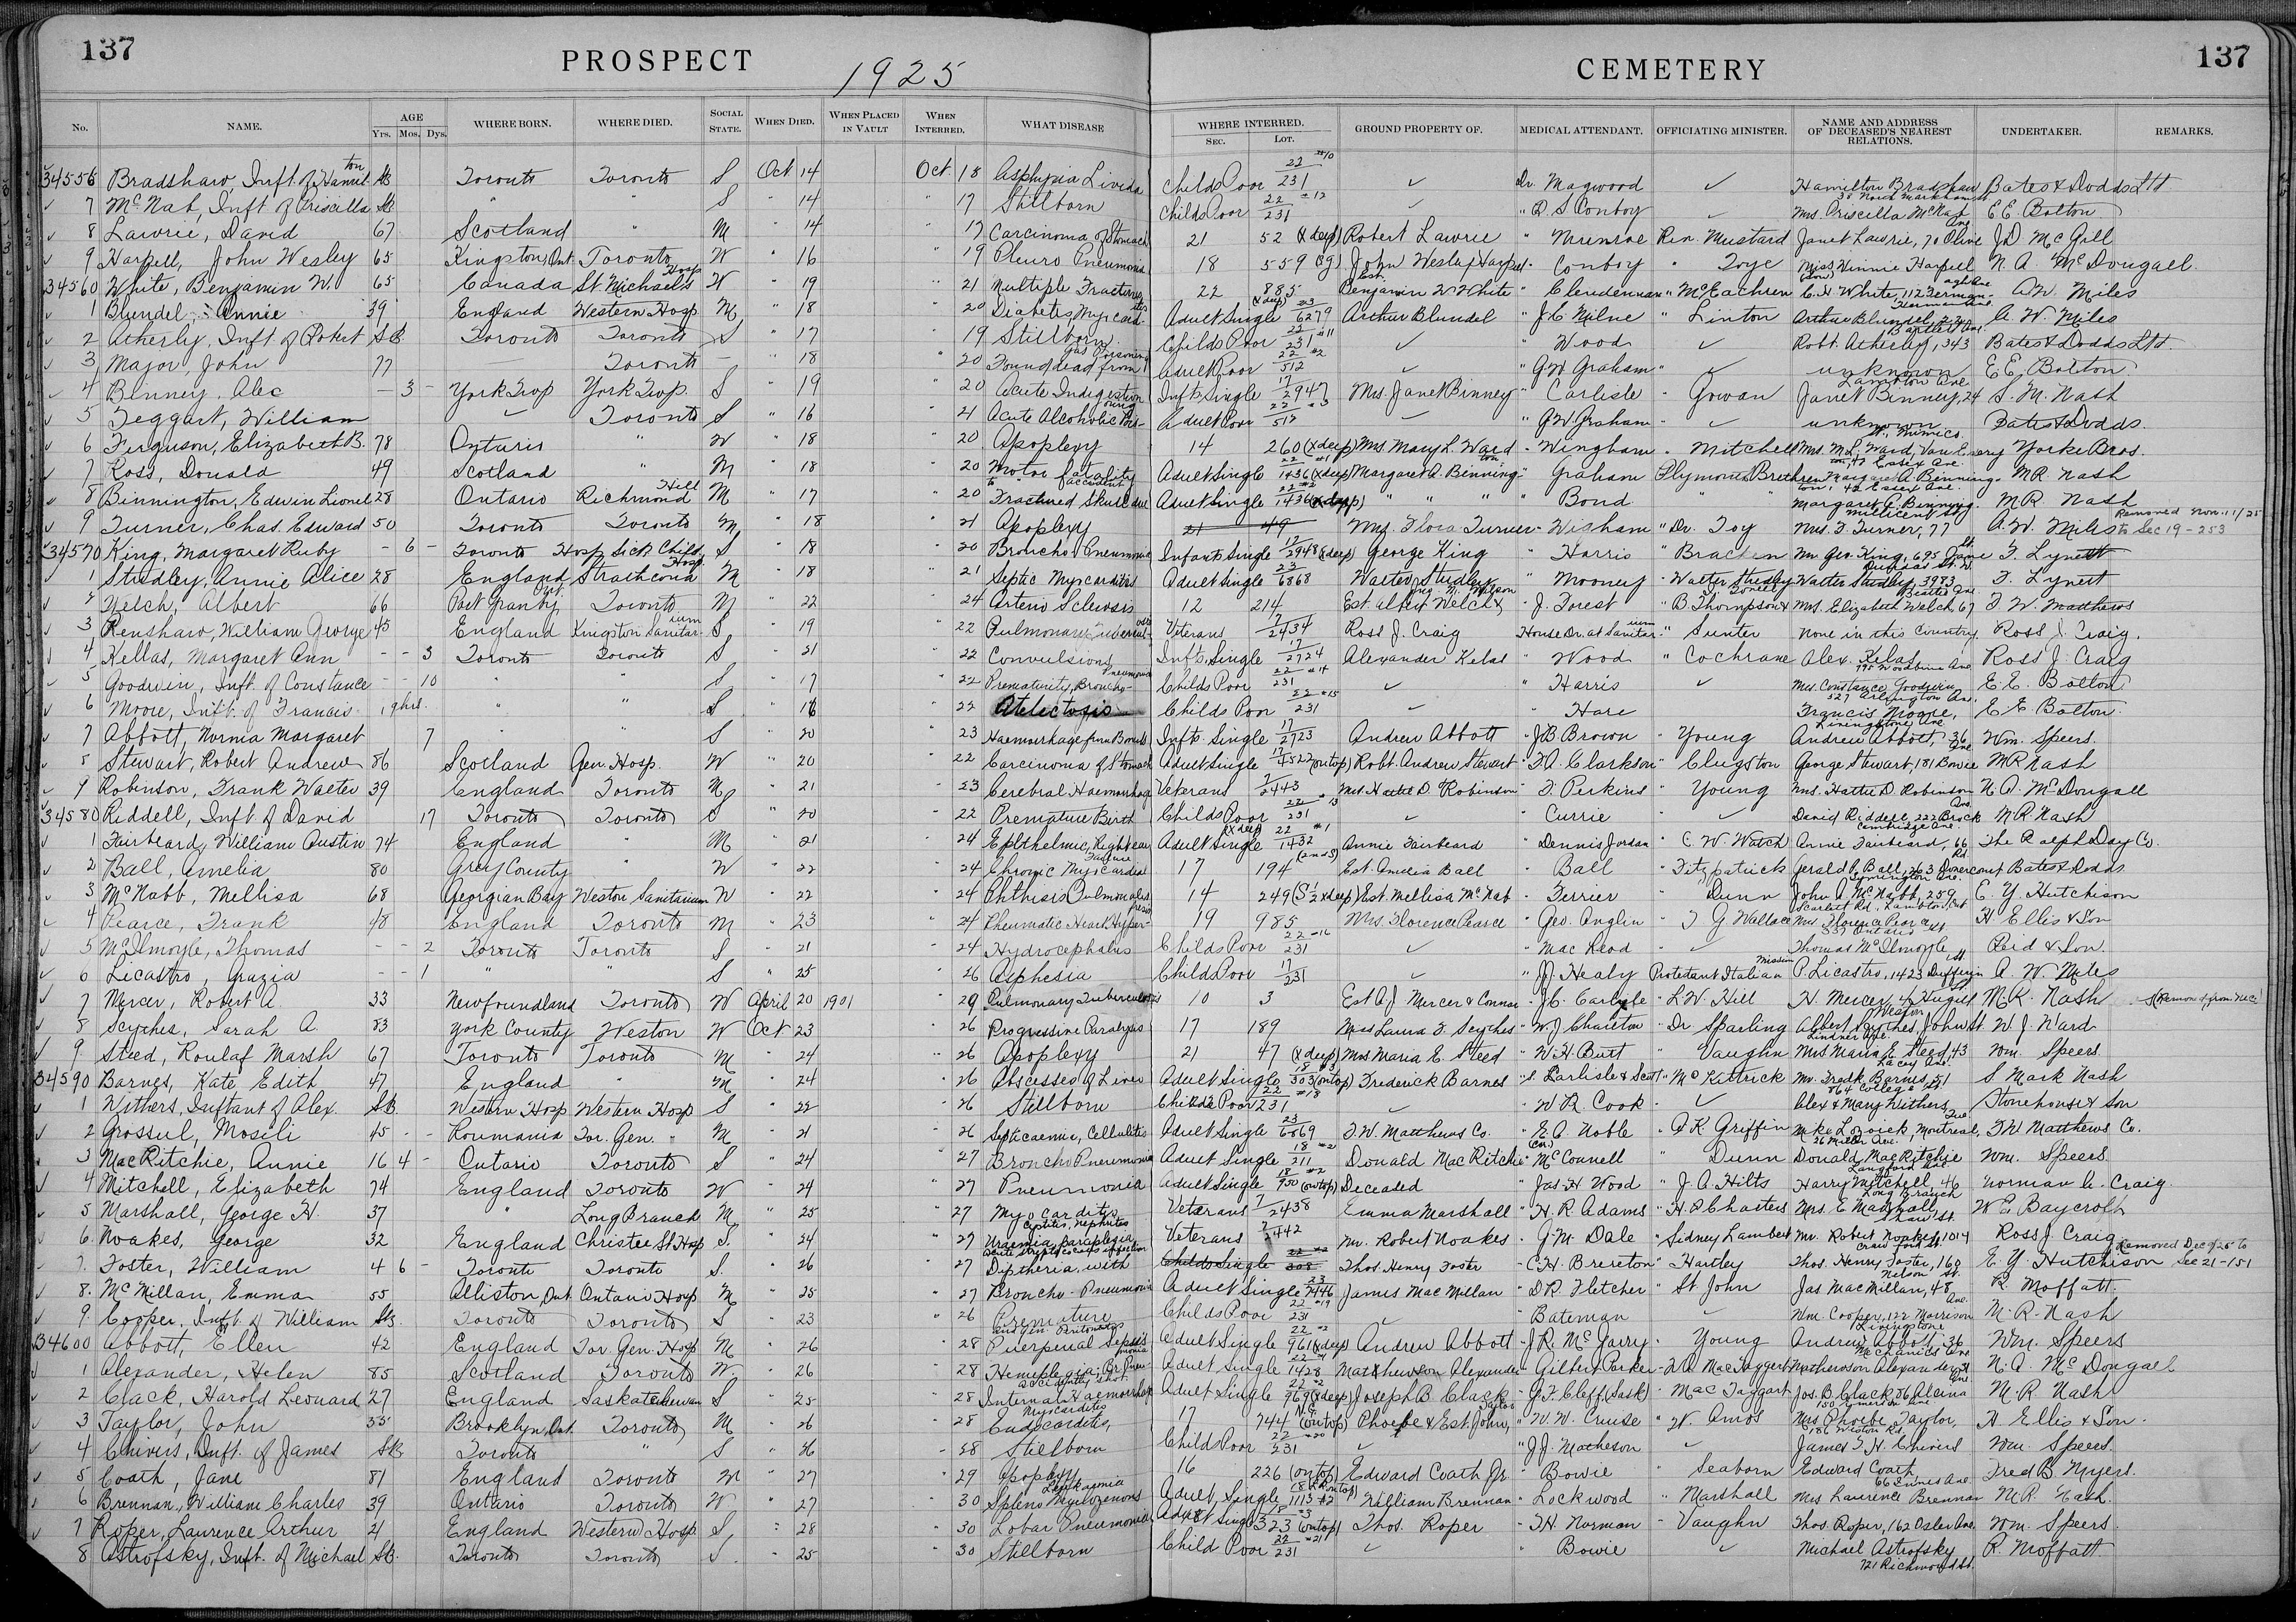 137 PROSPECT 1925 CEMETERY 137
No. NAME. AGE Yrs. Mos. Dys. WHERE BORN. WHERE DIED. SOCIAL STATE. WHEN DIED. WHEN PLACED IN VAULT WHEN INTERRED. WHAT DISEASE WHERE INTERRED. SEC. LOT. GROUND PROPERTY OF. MEDICAL ATTENDANT. OFFICIATING MINISTER. NAME AND ADDRESS OF DECEASED'S NEAREST RELATIONS. UNDERTAKER. REMARKS.
34556 Bradshaw, Inft. of Hamilton SB Toronto Toronto S Oct 14 Oct 18 Asphyxia Livida Childs Poor 22/231 #10 Dr. Magwood Hamilton Bradshaw Bates & Dodds Ltd
7 McNab, Inft of Priscilla SB " " S " 14 " 17 Stillborn Childs Poor 22/231 #12 " Conboy 38 North Markham St Mrs. Priscilla McNab E.E. Bolton
8 Lawrie, David 67 Scotland " M " 14 " 17 Carcinoma of Stomach 21 52 (x deep) Robert Lawrie " Munroe Rev. Mustard Janet Lawrie, 70 Olive Ave J.D. McGill
9 Harpell, John Wesley 65 Kingston, Ont. Toronto W " 16 " 19 Pleuro Pneumonia 18 559 John Wesley Harpell " Conboy " Toye Miss Winnie Harpell N. A. McDougall
34560 White, Benjamin W. 65 Canada St. Michael's Hosp W " 19 " 21 Multiple Fractures 22 885 (x deep) Est. Benjamin W White " Clendennan " McEachren (Son) C. H. White, 112 A.W. Miles
1 Blundel, Annie 39 England Western Hosp. M " 18 " 20 Diabetes, Myocarditis Adult Single 6279 #3 Arthur Blundel " J.C. Milne " Linton Arthur Blundel A. W. Miles
2 Atherly, Inft. of Robert SB. Toronto Toronto S " 17 " 19 Stillborn Childs Poor 22/231 #11 " Wood Robt. Atherley, 343 Bates & Dodds Ltd.
3 Major, John 77 — Toronto — " 18 " 20 Found dead from Gas Poisoning Adult Poor 22/512 #2 " G.W. Graham " unknown E.E. Bolton
4 Binney, Alec — 3 — York Twp York Twp. S " 19 " 20 Acute Indigestion Infts Single 17/2947 Mrs. Janet Binney " Carlisle " Gowan Janet Binney, 24 Lambton Ave S. M. Nash
5 Teggart, William Toronto S " 16 " 21 Acute Alcoholic Poisoning Adult Poor 22/512 #3 " G.W. Graham " unknown Bates & Dodds.
6 Ferguson, Elizabeth B. 78 Ontario " W " 18 " 20 Apoplexy 14 260 (x deep) Mrs Mary L. Ward " Wingham " Mitchell Mrs. M.L. Ward, Van Every W. Mimico Yorke Bros.
7 Ross, Donald 49 Scotland " M " 18 " 20 Motor fatality Adult Single 22/1436 #1 (x deep) Margaret A. Binnington " Graham Plymouth Brethren Margaret A. Binnington, 42 Essex Ave. M R. Nash
8 Binnington, Edwin Lionel 28 Ontario Richmond Hill M " 17 " 20 Fractured Skull Adult Single 22/1436 #2 (x deep) " " " " Bond " " Margaret A. Binnington, 42 Essex Ave. M R. Nash
9 Turner, Chas. Edward 50 Toronto Toronto M " 18 " 21 Apoplexy 21 49 Mrs. Flora Turner " Wigham " Dr. Toy Mrs. F. Turner, 77 Millicent St A.W. Miles Removed Nov. 11/25 to Sec 19 - 253
34570 King, Margaret Ruby — 6 — Toronto Hosp Sick Child. S " 18 " 20 Broncho Pneumonia Infants Single 17/2948 (x deep) George King " Harris " Bracken Mr Geo. King, 695 Jane St F. Lynett
1 Studley, Annie Alice 28 England Strathcona Hosp. M " 18 " 21 Septic Myocarditis Adult Single 23/6868 Walter Studley " Mooney " Walter Studley Walter Studley, 3983 Dundas St. W. F. Lynett
2 Welch, Albert 66 Port Granby, Ont. Toronto M " 22 " 24 Arterio Sclerosis 12 214 Est. Albert Welch & " J. Forest " B. Thompson & Mrs. Elizabeth Welch 67 F. W. Matthews
3 Renshaw, William George 45 England Kingston Sanitarium S " 19 " 22 Pulmonary Tuberculosis Veterans 7/2434 Ross J. Craig House Dr. at Sanitarium " Sunter None in this Country Ross J. Craig.
4 Kellas, Margaret Ann — — 3 Toronto Toronto S " 21 " 22 Convulsions Infts. Single 17/2724 Alexander Kelas " Wood " Cochrane Alex. Kelas, 795 Woodbine Ave Ross J. Craig
5 Goodwin, Inft. of Constance — — 10 " " S " 17 " 22 Prematurity, Broncho-Pneumonia Childs Poor 22/231 #14 " Harris Mrs. Constance Goodwin, 327 Arlington Av. E.E. Bolton
6 Moore, Inft. of Francis 19 hrs. " " S " 18 " 22 Atelectasis Childs Poor 22/231 #15 " Hare Francis Moore, E.E. Bolton
7 Abbott, Norma Margaret 7 " " S " 20 " 23 Haemorrhage from Bowels Infts. Single 17/2723 Andrew Abbott " J.B. Brown " Young Andrew Abbott, 36 Livingstone Ave Wm. Speers.
8 Stewart, Robert Andrew 86 Scotland Gen. Hosp. W " 20 " 22 Carcinoma of Stomach Adult Single 17/4522 (on top) Robt. Andrew Stewart " F.A. Clarkson " Clugston George Stewart, 181 Bowie Ave M R Nash
9 Robinson, Frank Walter 39 England Toronto M " 21 " 23 Cerebral Haemorrhage Veterans 7/2443 Mrs Hattie D. Robinson " F. Perkins " Young Mrs. Hattie D. Robinson N. A. McDougall
34580 Riddell, Inft of David 17 Toronto Toronto S " 20 " 22 Premature Birth Childs Poor 22/231 #13 " Currie David Riddell, 222 Brock Ave. M R Nash
1 Fairbeard, William Austin 74 England " M " 21 " 24 Epithelmic, Right ear Adult Single 22/1432 #1 (x deep) Annie Fairbeard " Dennis Jordan " C. W. Watch Annie Fairbeard, 66 Cambridge Ave. The Ralph Day Co.
2 Ball, Amelia 80 Grey County " W " 22 " 24 Chronic Myocardial Failure 17 194 Est. Amelia Ball " Ball " Fitzpatrick Gerald C. Ball, 463 Dovercourt Rd Bates & Dodds
3 McNabb, Mellisa 68 Georgian Bay Weston Sanitarium W " 22 " 24 Phthisis Pulmonalis 14 249 (S½ x deep) Est. Mellisa McNab " Ferrier " Dunn John A. McNabb, 259 E. Y. Hutchison
4 Pearce, Frank 48 England Toronto M " 23 " 24 Rheumatic Heart 19 985 Mrs. Florence Pearce " Geo. Anglin " T G Wallace Mrs Florence Pearce, Scarlett Rd., Lambton, Ont H Ellis & Son
5 McIlmoyle, Thomas — — 2 Toronto Toronto S " 21 " 24 Hydrocephalus Childs Poor 22/231 #16 " MacLeod Thomas McIlmoyle, 337 Ontario St Reid & Son
6 Licastro, Grazia — — 1 " " S " 25 " 26 Asphesia Childs Poor 17/231 " J.J. Healy Protestant Italian Mission P. Licastro, 1423 Dufferin St. A. W. Miles
7 Mercer, Robert A. 33 Newfoundland Toronto W April 20 1901 29 Pulmonary Tuberculosis 10 3 Est A J Mercer & Connor " J.C. Carlyle " L.W. Hill H. Mercer M.R. Nash
8 Scythes, Sarah A. 83 York County Weston W Oct 23 " 26 Progressive Paralysis 17 189 Miss Laura F. Scythes " W.J. Charlton " Dr Sparling Albert Scythes, John St. Weston W. J. Ward
9 Steed, Roulaf Marsh 67 Toronto Toronto M " 24 " 26 Apoplexy 21 47 (x deep) Mrs Maria E. Steed " W.H. Butt " Vaughn Mrs Maria E Steed, 43 Lindner Ave. Wm. Speers.
34590 Barnes, Kate Edith 47 England " M " 24 " 26 Abscesses of Liver Adult Single 18/303 #3 (on top) Frederick Barnes " Carlisle & Scott " McKittrick Mr. Fredk. Barnes, 51 Lacey Ave. S Mark Nash
1 Withers, Inftant of Alex. SB. Western Hosp Western Hosp S " 22 " 26 Stillborn Childs Poor 22/231 #18 " W R Cook " Alex & Mary Withers, 864 College St. Stonehouse & Son
2 Grossul, Mosili 45 — — Roumania Tor. Gen. " M " 21 " 26 Septicaemia, Cellulitis Adult Single 23/6869 F.W. Matthews Co. " E.A. Noble " A K Griffin Mike Lozoick, Montreal, Que. F.W Matthews Co.
3 MacRitchie, Annie 16 4 — Ontario Toronto S " 24 " 27 Broncho Pneumonia Adult Single 18/211 #2 Donald MacRitchie McConnell " Dunn Donald MacRitchie, 26 Miller Ave. Wm. Speers
4 Mitchell, Elizabeth 74 England Toronto W " 24 " 27 Pneumonia Adult Single 18/950 #2 (on top) Deceased " Jas. H Wood " J. A. Hilts Harry Mitchell, 46 Langford Ave Norman A. Craig.
5 Marshall, George H. 37 " Long Branch M " 25 " 27 Myocarditis Veterans 7/2438 Emma Marshall " H. R. Adams " H R Charters Mrs. E Marshall, Long Branch W E Baycroft
6 Noakes, George 32 England Christie St. Hosp S. " 24 " 27 Uraemia, Paraplegia Cystitis, Nephritis Veterans 7/2442 Mr. Robert Noakes " G.M. Dale " Sidney Lambert Mr. Robert Noakes, 1014 Shaw St. Ross J. Craig.
7 Foster, William 4 6 — Toronto Toronto S. " 26 " 27 Diptheria with acute streptococcus infection Childs Single 22/308 #2 Thos. Henry Foster " C.H. Brereton " Hartley Thos. Henry Foster, 160 Crawford St. E. Y. Hutchison Removed Dec 9/25 to Sec 21 - 151
8 McMillan, Emma 55 Alliston, Ont. Ontario Hosp M " 25 " 27 Broncho-Pneumonia Adult Single 23/7446 James MacMillan " D R Fletcher " St John Jas MacMillan, 48 Nelson St. R. Moffatt.
9 Cooper, Inft. of William SB. Toronto Toronto S " 23 " 26 Premature Childs Poor 22/231 #19 " Bateman Wm. Cooper, 122 Morrison Ave. M. R. Nash
34600 Abbott, Ellen 42 England Tor. Gen. Hosp M " 26 " 28 Puerperial Sepsis and Gen Peritonitis Adult Single 22/961 #2 (x deep) Andrew Abbott " J.R. McGarry " Young Andrew Abbott, 36 Livingstone Wm. Speers
1 Alexander, Helen 85 Scotland Toronto W " 26 " 28 Hemiplegia, Br. Pneumonia Adult Single 22/1428 Matthewson Alexander " Gilbert Parker " MacTaggert Mathewson Alexander N. A. McDougall
2 Clack, Harold Leonard 27 England Saskatchewan S " 25 " 28 Internal Haemorrhage Adult Single 22/969 #2 (x deep) Joseph B Clack " G.F. Cleff (Sask) " MacTaggart Jos. B. Clack, 86 Alcina Ave. M. R. Nash
3 Taylor, John 55 Brooklyn, Ont. Toronto M " 26 " 28 Endocarditis, Myocarditis 17 744 (on top) Phoebe & Est. John Taylor " W. W. Cruise " W. Amos Mrs Phoebe Taylor, 150 Emerson Ave H Ellis & Son.
4 Chivers, Inft. of James SB Toronto " S " 26 " 28 Stillborn Childs Poor 22/231 #20 " J.J. Matheson James F.H. Chivers, 186 Weston Rd Wm. Speers.
5 Coath, Jane 81 England Toronto W " 27 " 29 Apoplexy 16 226 (on top) Edward Coath Jr " Bowie " Seaborn Edward Coath, 66 Innes Ave. Fred B. Myers.
6 Brennan, William Charles 39 Ontario Toronto W " 27 " 30 Spleno Myelogenous Leukaemia Adult Single 18/1113 #2 (on top) William Brennan " Lockwood " Marshall Mrs Laurence Brennan M R. Nash.
7 Roper, Laurence Arthur 21 England Western Hosp S " 28 " 30 Lobar Pneumonia Adult Single 18/323 #3 (on top) Thos. Roper " T.H. Norman " Vaughn Thos. Roper, 162 Osler Ave. Wm. Speers.
8 Astrofsky, Inft. of Michael SB. Toronto Toronto S. " 25 " 30 Stillborn Child Poor 22/231 #21 " Bowie Michael Astrofsky 721 Richmond St. R. Moffatt.